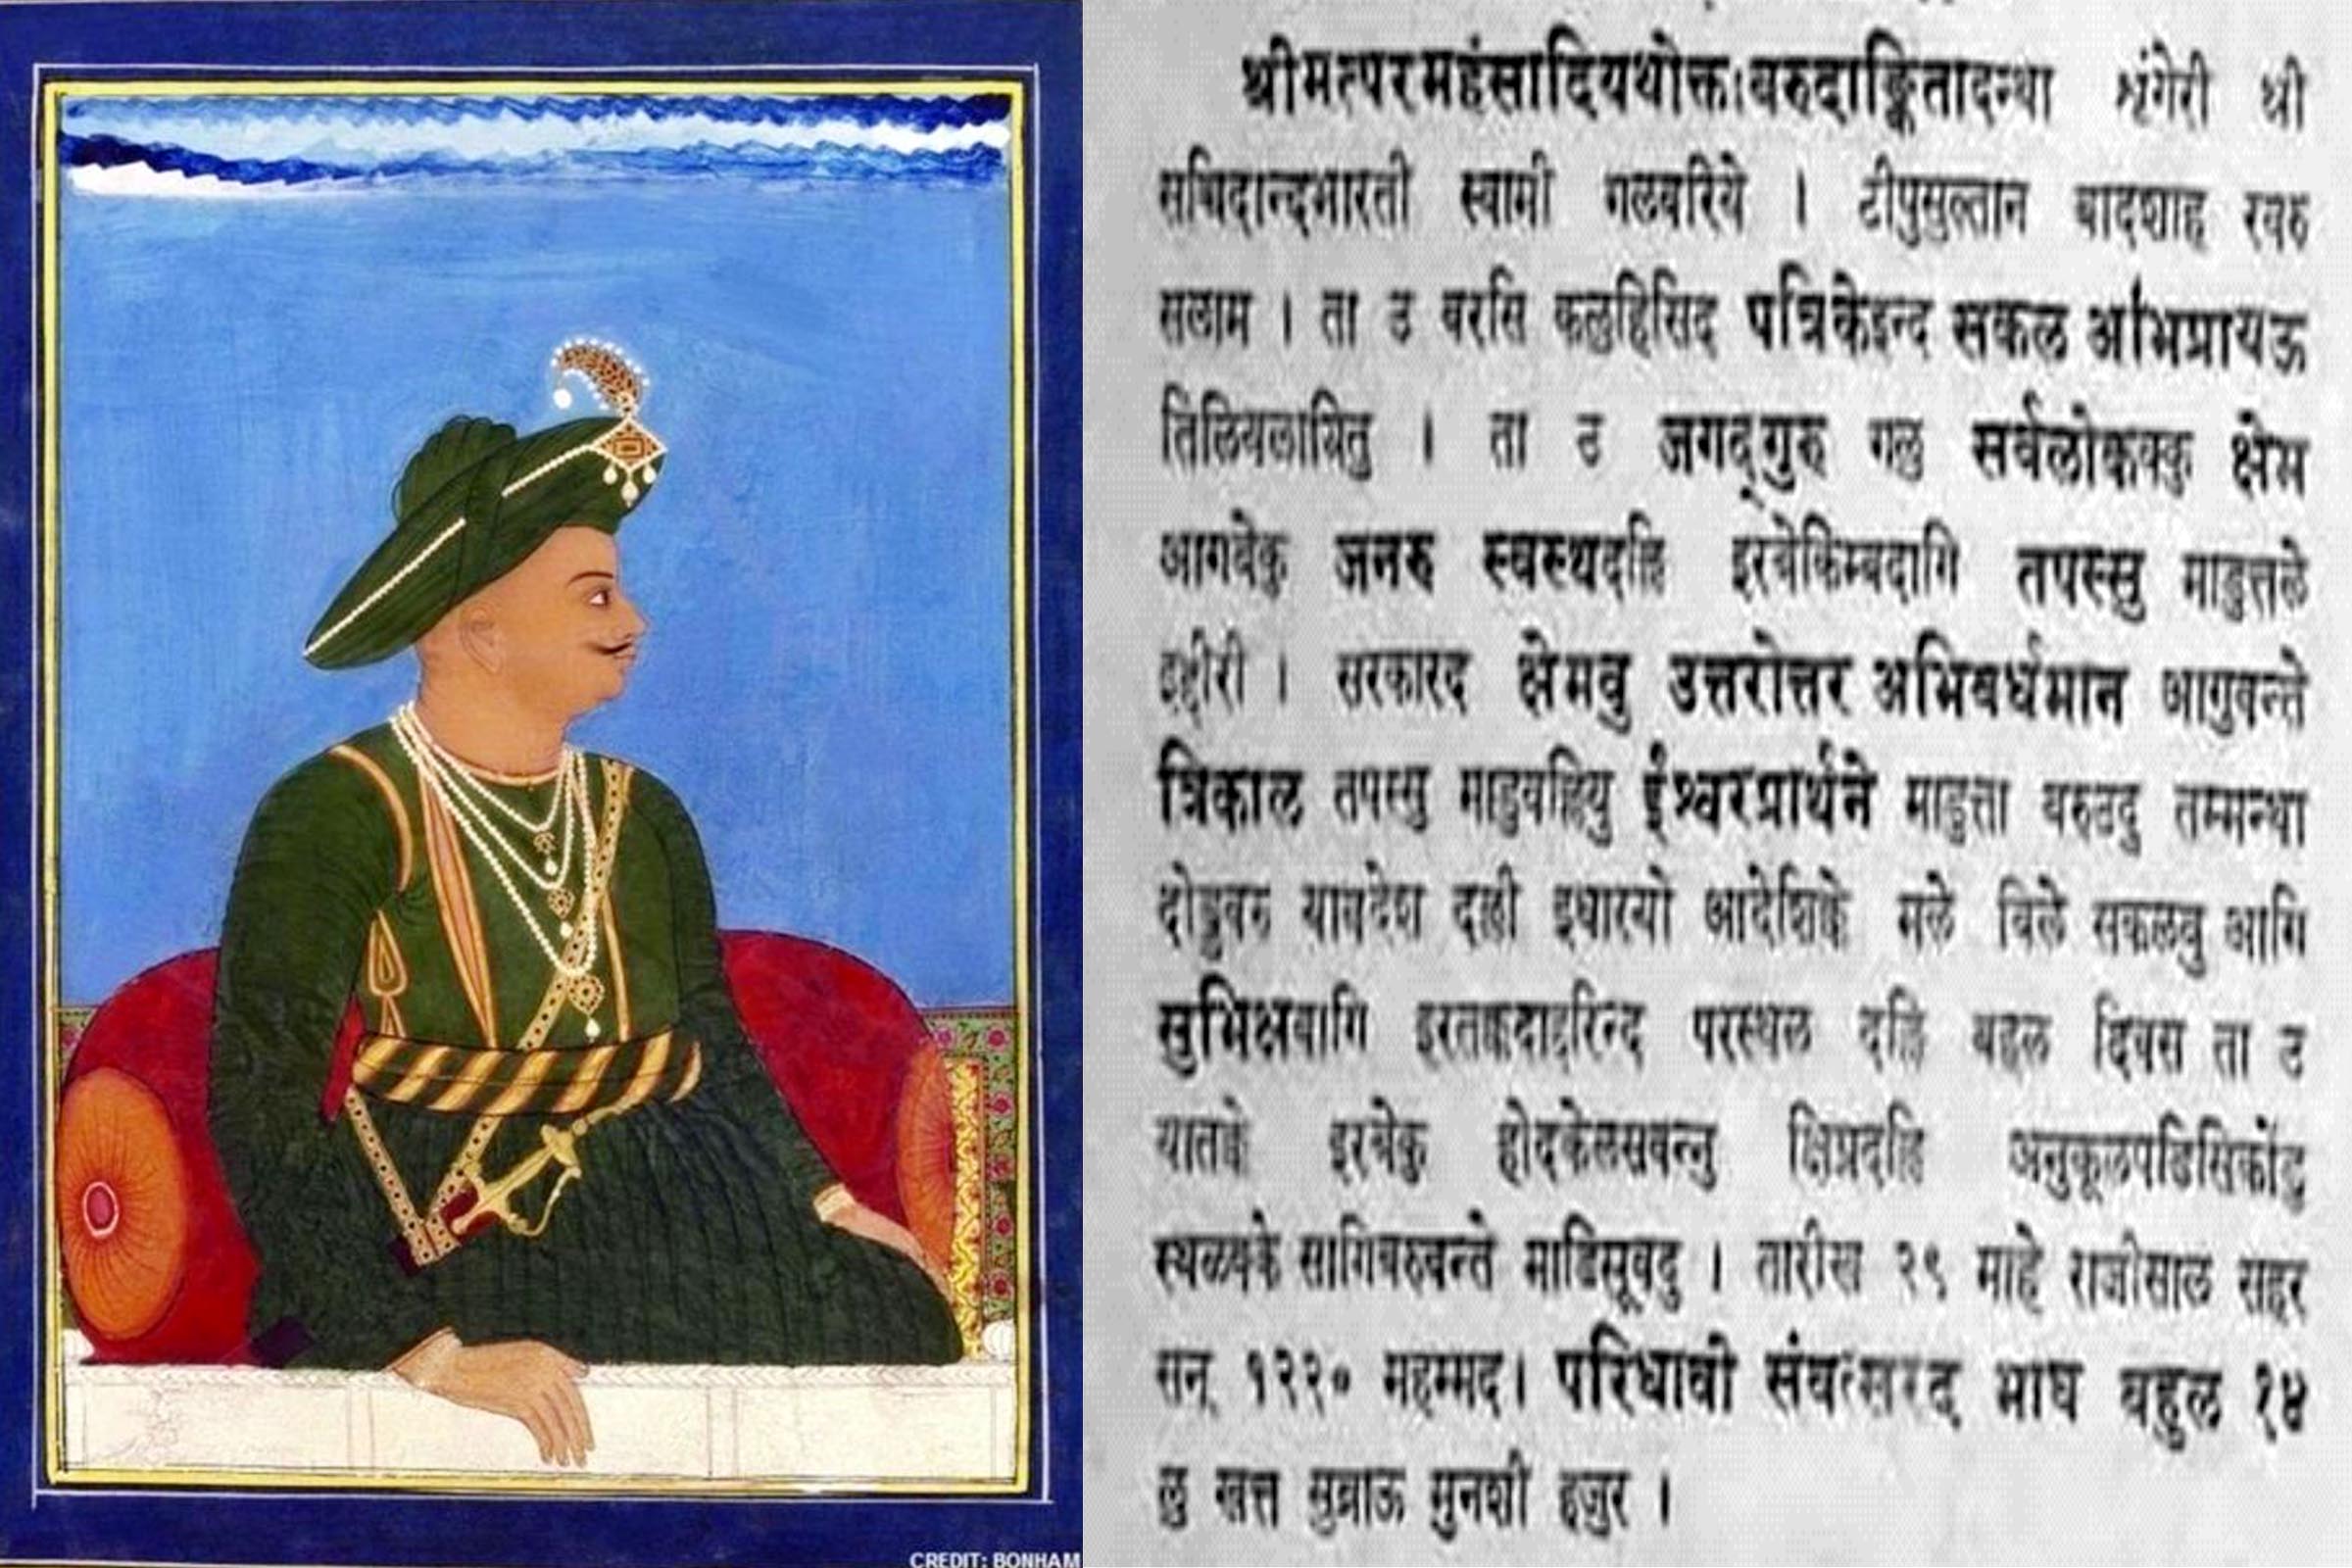 श्रीमत्परमहंसादियथोक्तबिरुदाङ्कितादन्था शृंगेरी श्री
सच्चिदान्दभारती स्वामी गलवरिये । टीपुसुल्तान बादशाह रवरु
सलाम । ता उ बरसि कलुहिसिद पत्रिकेइन्द सकल अभिप्रायऊ
तिलियलायितु । ता उ जगद्गुरु गलु सर्वलोकक्कु क्षेम
आगबेकु जनरु स्वस्थदल्लि इरबेकिम्बदागि तपस्सु माडुत्तले
इद्दीरी । सरकारद क्षेमवु उत्तरोत्तर अभिवर्धमान आगुवन्ते
त्रिकाल तपस्सु माडुवल्लियु ईश्वरप्रार्थने माडुत्ता बरुउदु तम्मन्था
दोड्डवरु यावदेश दल्ली इधारयो आदेशिक्के मले बिले सकलवु आगि
सुभिक्षवागि इरतक्कदाद्दरिन्द परस्थल दल्लि बहल दिवस ता उ
यातक्के इरबेकु होदकेलसवन्नु क्षिप्रदल्लि अनुकूलपडिसिकोंडु
स्थळक्के सागिबरुवन्ते माडिसूवदु । तारीख २९ माहे राजीसाल सहर
सन् १२२० महम्मद। परिधावी संवत्सरद माघ बहुल १४
लु खत्त सुब्राऊ मुनशी हजुर ।
CREDIT: BONHAM